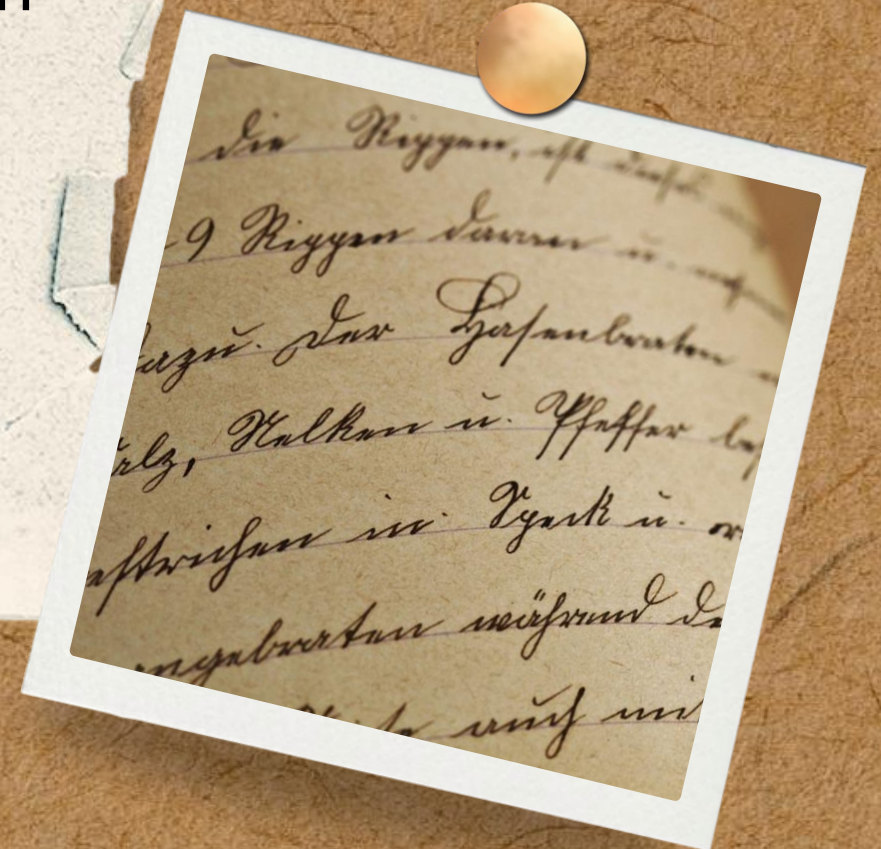 die Rippen, ist diese
9 Rippen daran u.
dazu. Der Hasenbraten
Salz, Nelken u. Pfeffer
estrichen in Speck u.
angebraten während de
auch mit